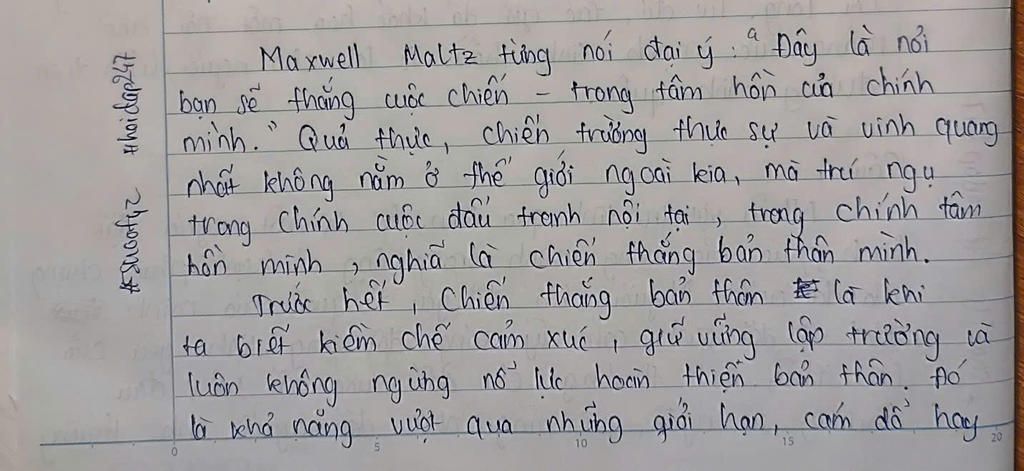 Maxwell Maltz từng nói đại ý: "Đây là nơi
bạn sẽ thắng cuộc chiến - trong tâm hồn của chính
mình." Quả thực, chiến trường thực sự và vinh quang
nhất không nằm ở thế giới ngoài kia, mà trú ngụ
trong chính cuộc đấu tranh nội tại, trong chính tâm
hồn mình, nghĩa là chiến thắng bản thân mình.
Trước hết, chiến thắng bản thân là khi
ta biết kiềm chế cảm xúc, giữ vững lập trường và
luôn không ngừng nỗ lực hoàn thiện bản thân. Đó
là khả năng vượt qua những giới hạn, cám dỗ hay
#hoidap247
0 5 10 15 20